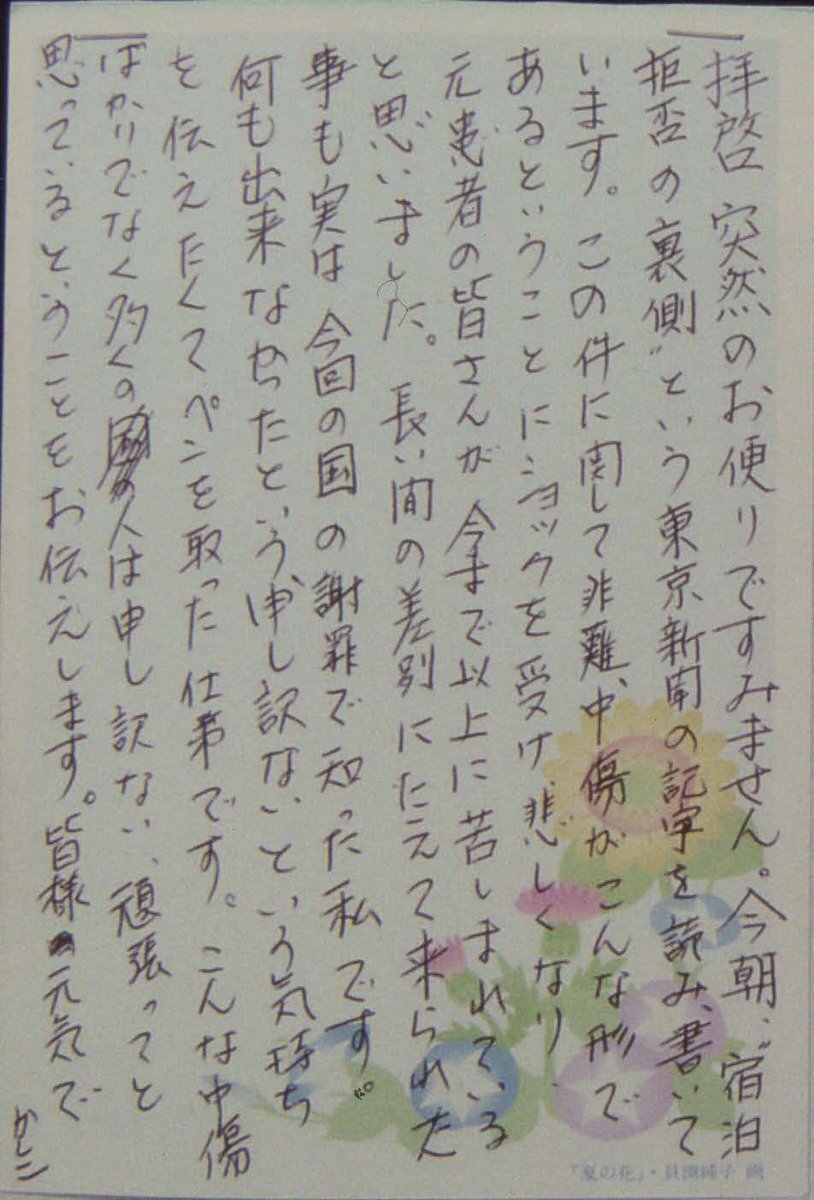 拝啓 突然のお便りですみません。今朝、〝宿泊
拒否の裏側〟という東京新聞の記字を読み、書いて
います。この件に関して非難、中傷がこんな形で
あるということにショックを受け、悲しくなり、
元患者の皆さんが今まで以上に苦しまれている
と思いました。長い間の差別にたえて来られた
事も実は今回の国の謝罪で知った私です。
何も出来なかったという申し訳ないという気持ち
を伝えたくてペンを取った仕第です。こんな中傷
ばかりでなく多くの人は申し訳ない、頑張ってと
思っているということをお伝えします。皆様元気で
かしこ
「夏の花」・貝淵純子 画